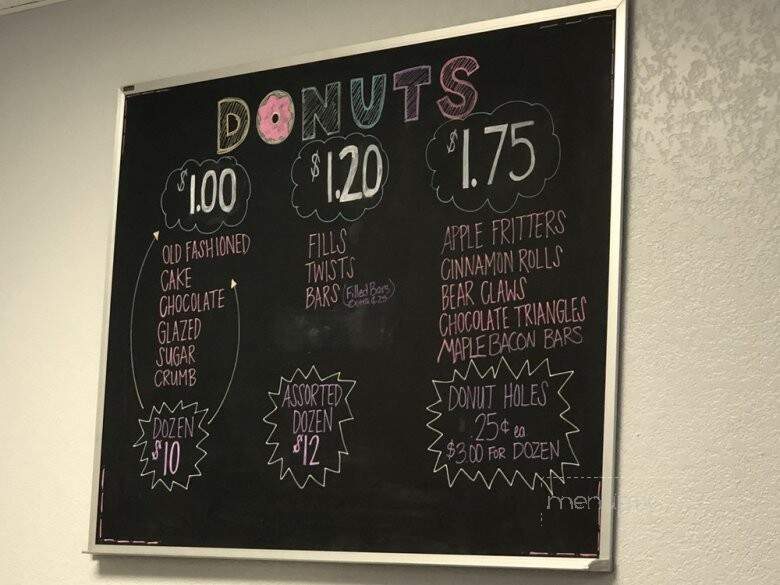 DONUTS
$1.00
OLD FASHIONED
CAKE
CHOCOLATE
GLAZED
SUGAR
CRUMB
DOZEN
$10
$1.20
FILLS
TWISTS
BARS (Filled Bars
extra ¢.25)
ASSORTED
DOZEN
$12
$1.75
APPLE FRITTERS
CINNAMON ROLLS
BEAR CLAWS
CHOCOLATE TRIANGLES
MAPLE BACON BARS
DONUT HOLES
.25¢ ea
$3.00 FOR DOZEN